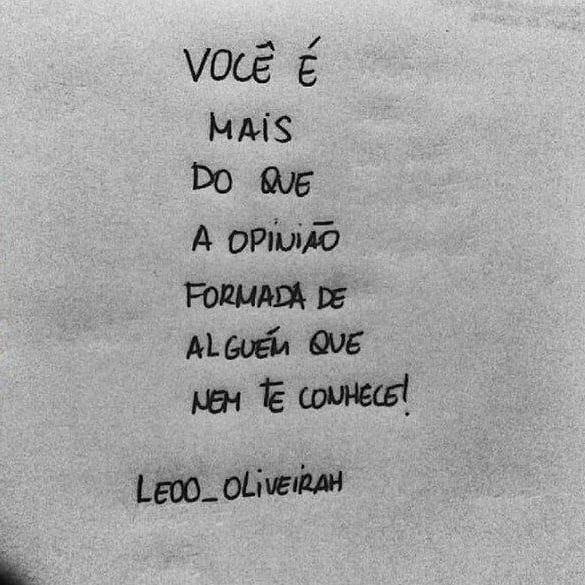 VOCÊ É
MAIS
DO QUE
A OPINIÃO
FORMADA DE
ALGUÉM QUE
NEM TE CONHECE!
LEOO_OLIVEIRAH